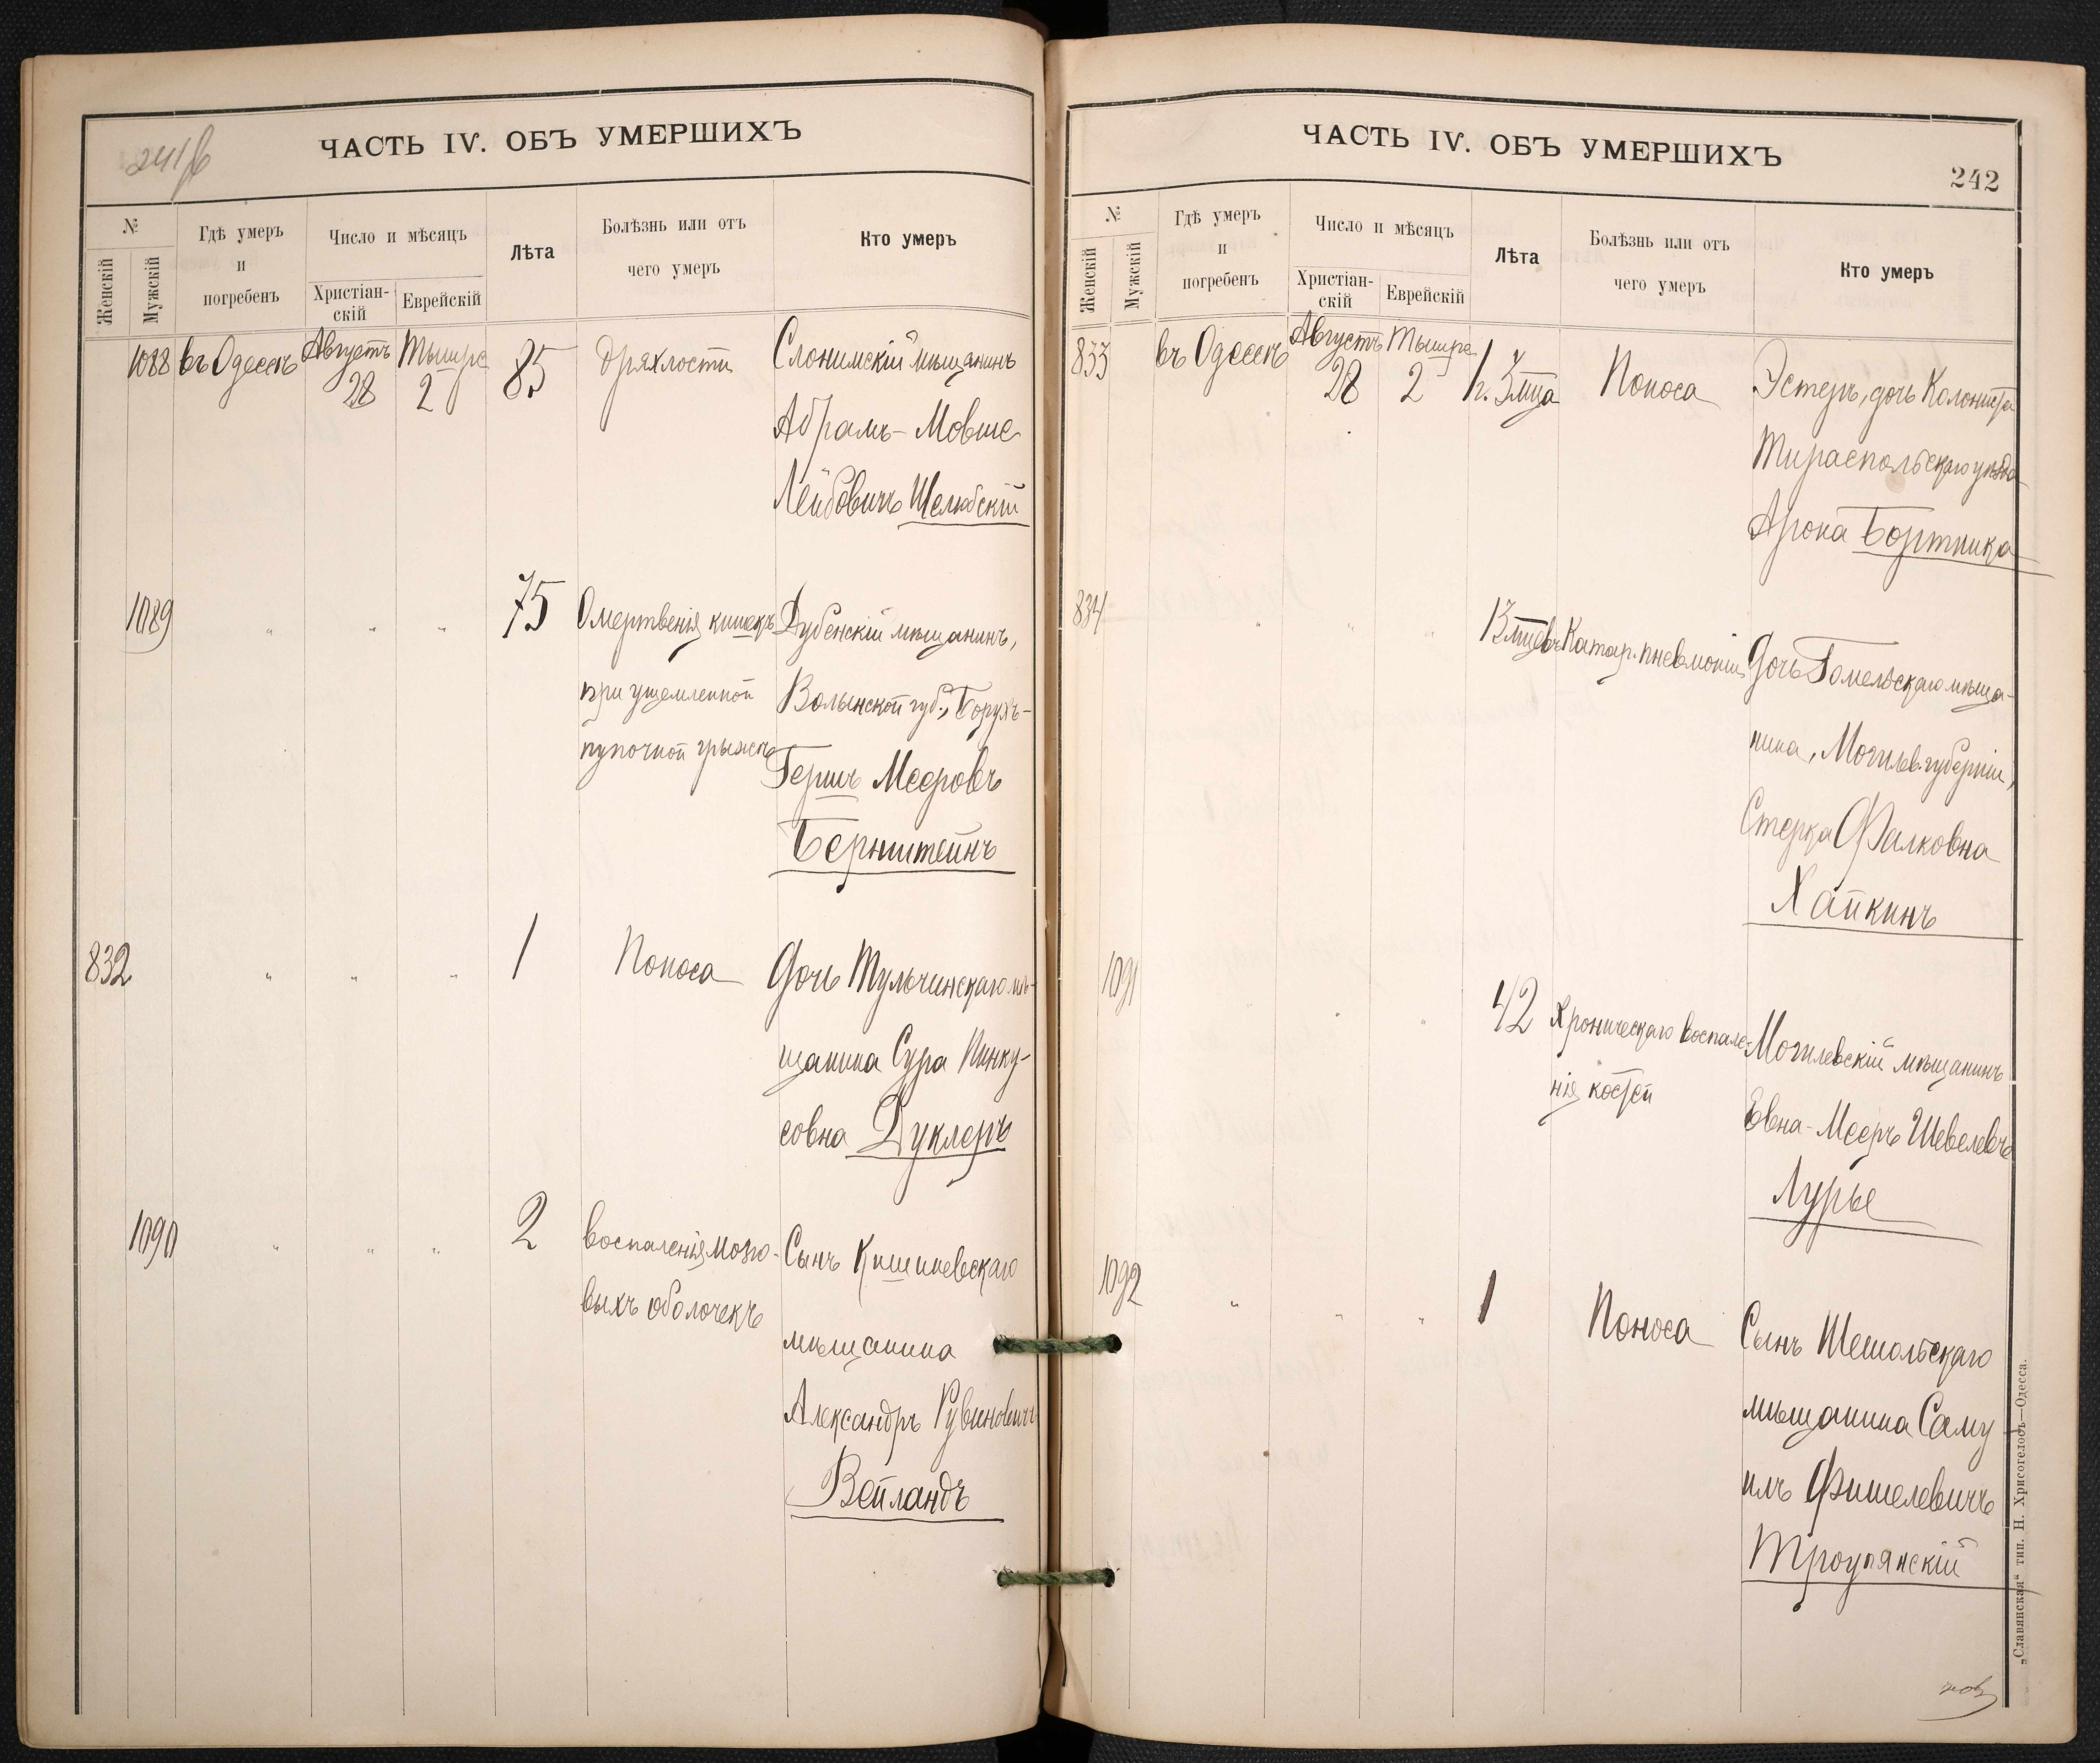 241/б
ЧАСТЬ IV. ОБЪ УМЕРШИХЪ
№
Женскій
Мужскій
Гдѣ умеръ
и
погребенъ
Число и мѣсяцъ
Христіан-
скій
Еврейскій
Лѣта
Болѣзнь или отъ
чего умеръ
Кто умеръ
1088 въ Одессѣ Августъ 28 Тышре 2 85 Дряхлости Слонимскій мѣщанинъ
Абрамъ-Мовше
Лейбовичъ Шелюбскій
1089 " " " 75 Омертвенія кишекъ Дубенскій мѣщанинъ,
при ущемленной Волынской губ., Борухъ-
пупочной грыжѣ Гершъ Мееровъ
Бернштейнъ
832 " " " 1 Поноса Дочь Тульчинскаго мѣ-
щанина Сура Пинку-
совна Дуклеръ
1090 " " " 2 воспаленія мозго- Сынъ Кишиневскаго
выхъ оболочекъ мѣщанина
Александръ Рувиновичъ
Вейландъ
ЧАСТЬ IV. ОБЪ УМЕРШИХЪ
242
№
Женскій
Мужскій
Гдѣ умеръ
и
погребенъ
Число и мѣсяцъ
Христіан-
скій
Еврейскій
Лѣта
Болѣзнь или отъ
чего умеръ
Кто умеръ
833 въ Одессѣ Августъ 28 Тышре 2 1 г. 3 мца Поноса Эстеръ, дочь Колониста
Тираспольскаго уѣзда
Арона Бортника
834 " " " 13 мцевъ Катар. пневмоніи Дочь Гомельскаго мѣща-
нина, Могилев. губерніи,
Стерка Фалковна
Хайкинъ
1091 " " 42 Хроническаго воспале- Могилевскій мѣщанинъ
нія костей Евна-Мееръ Шевелевъ
Лурье
1092 " " " 1 Поноса Сынъ Шешольскаго
мѣщанина Саму-
илъ Фишелевичъ
Троупянскій
„Славянская“ тип. Н. Хрисогелосъ—Одесса.